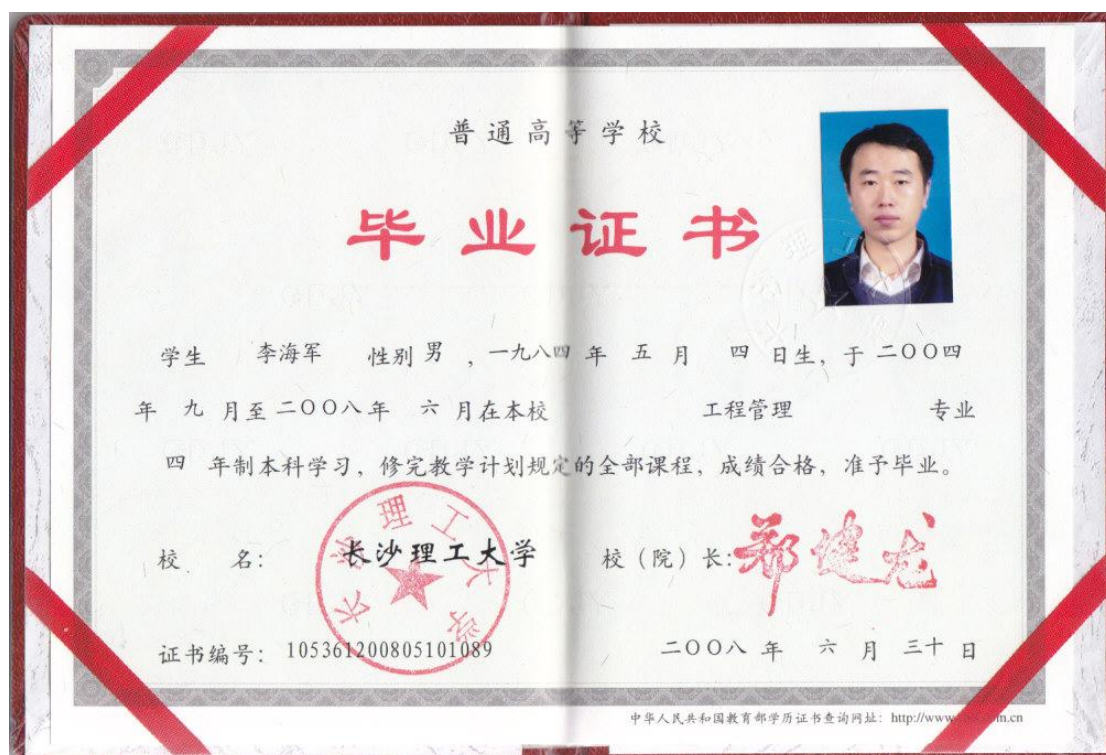 普通高等学校
毕业证书
学生 李海军 性别 男 ，一九八四 年 五 月 四 日生，于 二〇〇四
年 九 月至 二〇〇八 年 六 月在本校 工程管理 专业
四 年制本科学习，修完教学计划规定的全部课程，成绩合格，准予毕业。
校 名： 长沙理工大学 校（院）长： 郑健龙
长沙理工大学
证书编号： 105361200805101089 二〇〇八 年 六 月 三十 日
中华人民共和国教育部学历证书查询网址： http://www